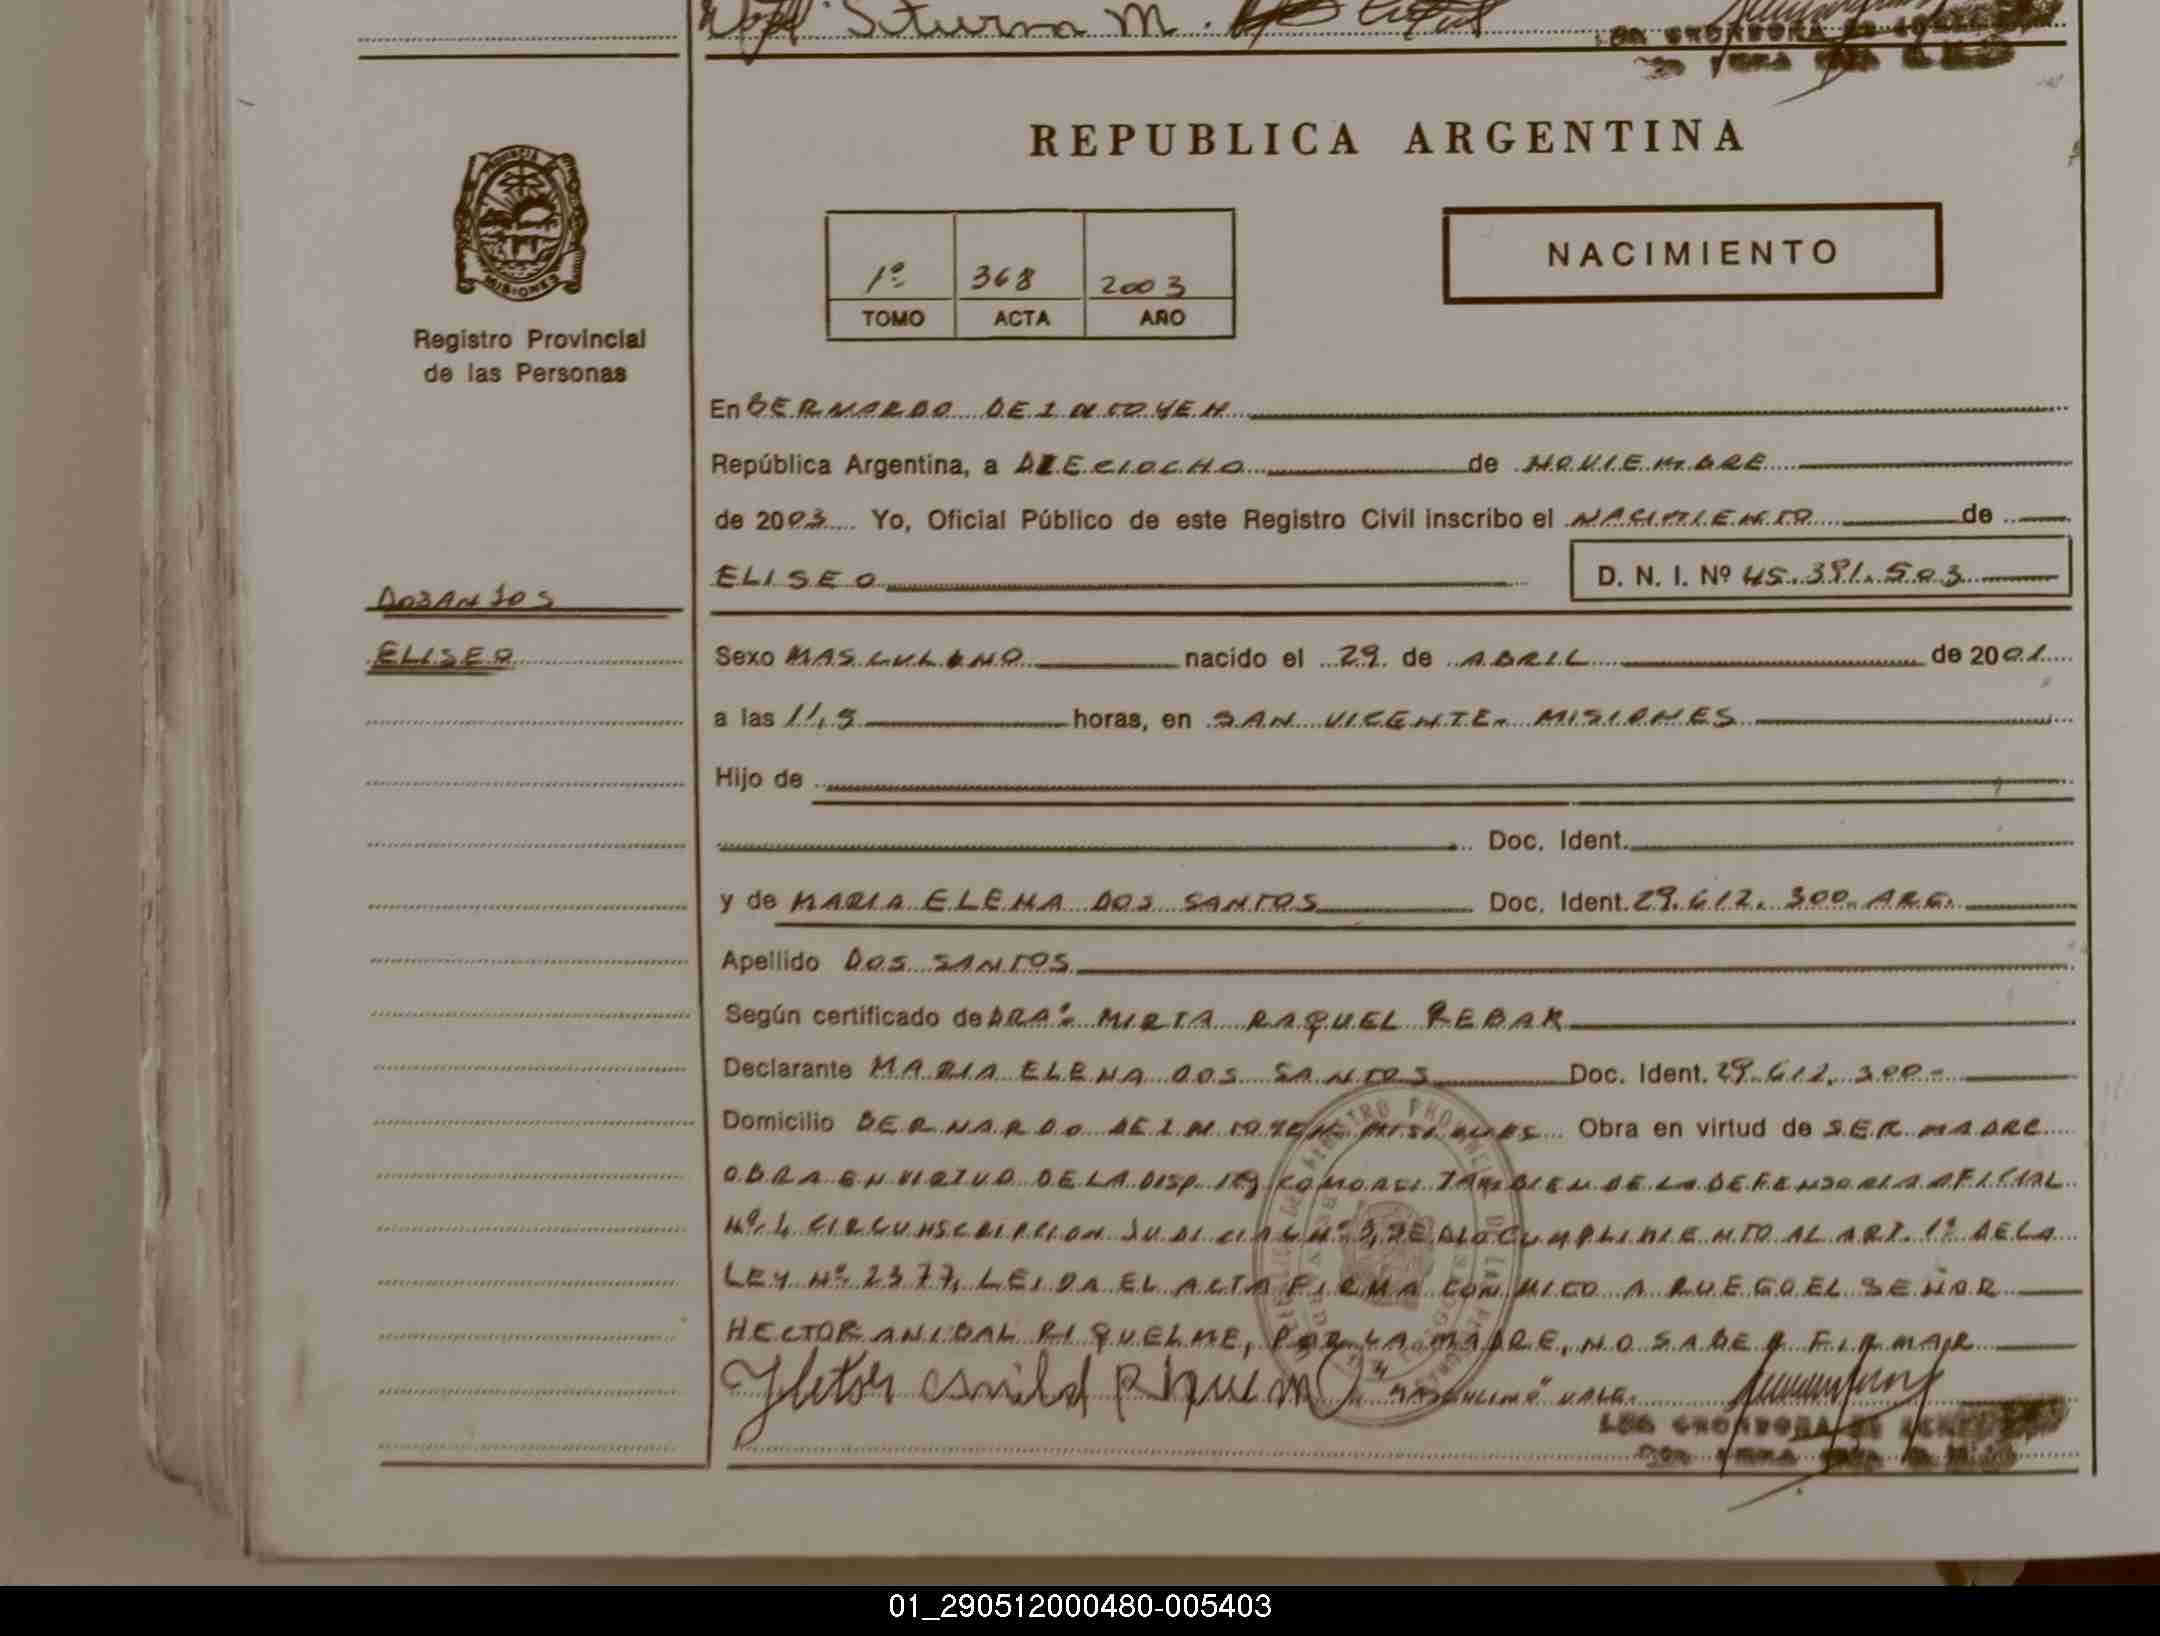 REPUBLICA ARGENTINA
PROVINCIA
MISIONES
Registro Provincial
de las Personas
1º 368 2003
TOMO ACTA AÑO
NACIMIENTO
En BERNARDO DE IRIGOYEN
República Argentina, a DIECIOCHO de NOVIEMBRE
de 2003 Yo, Oficial Público de este Registro Civil inscribo el NACIMIENTO de
ELISEO D. N. I. Nº 45.391.503
ELISEO
Sexo MASCULINO nacido el 29 de ABRIL de 2001
a las 11,5 horas, en SAN VICENTE. MISIONES
Hijo de
Doc. Ident.
y de MARIA ELENA DOS SANTOS Doc. Ident. 29.612.300. ARG.
Apellido DOS SANTOS
Según certificado de DRAº MIRTA RAQUEL REBAK
Declarante MARIA ELENA DOS SANTOS Doc. Ident. 29.612.300-
Domicilio BERNARDO DE IRIGOYEN MISIONES Obra en virtud de SER MADRE
OBRA EN VIRTUD DE LA DISP. COMO ASI TAMBIEN DE LA DEFENSORIA OFICIAL
CIRCUNSCRIPCION JUDICIAL Nº 3, SE DIO CUMPLIMIENTO AL ART. 1º DE LA
LEY Nº 2377, LEIDA EL ACTA FIRMA CONMIGO A RUEGO EL SEÑOR
HECTOR ANIBAL RIQUELME, POR LA MADRE, NO SABER FIRMAR
"MASCULINO" VALE.
01_290512000480-005403